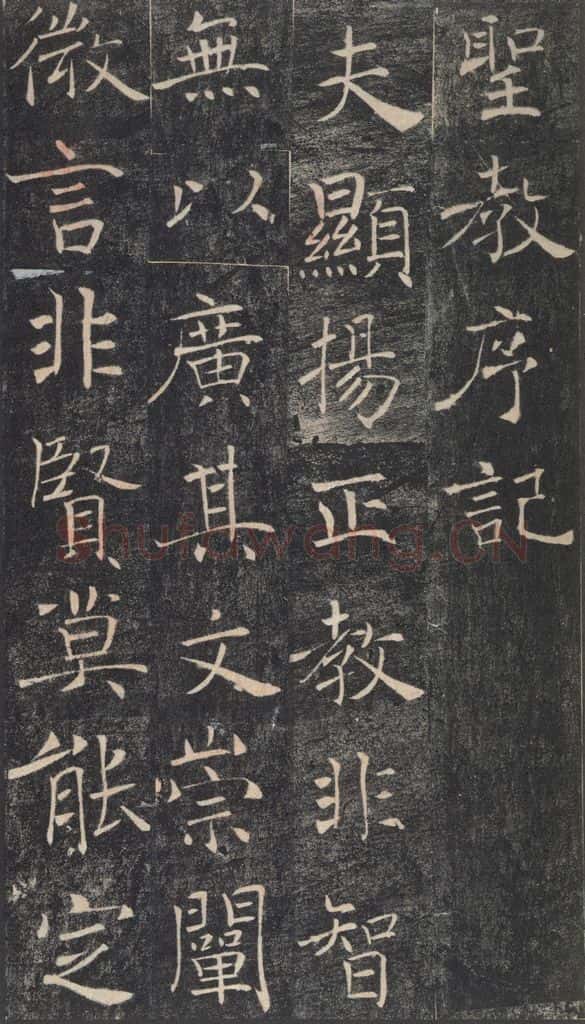 聖教序記
夫顯揚正教非智
無以廣其文崇闡
微言非賢莫能定
Shufawang.CN